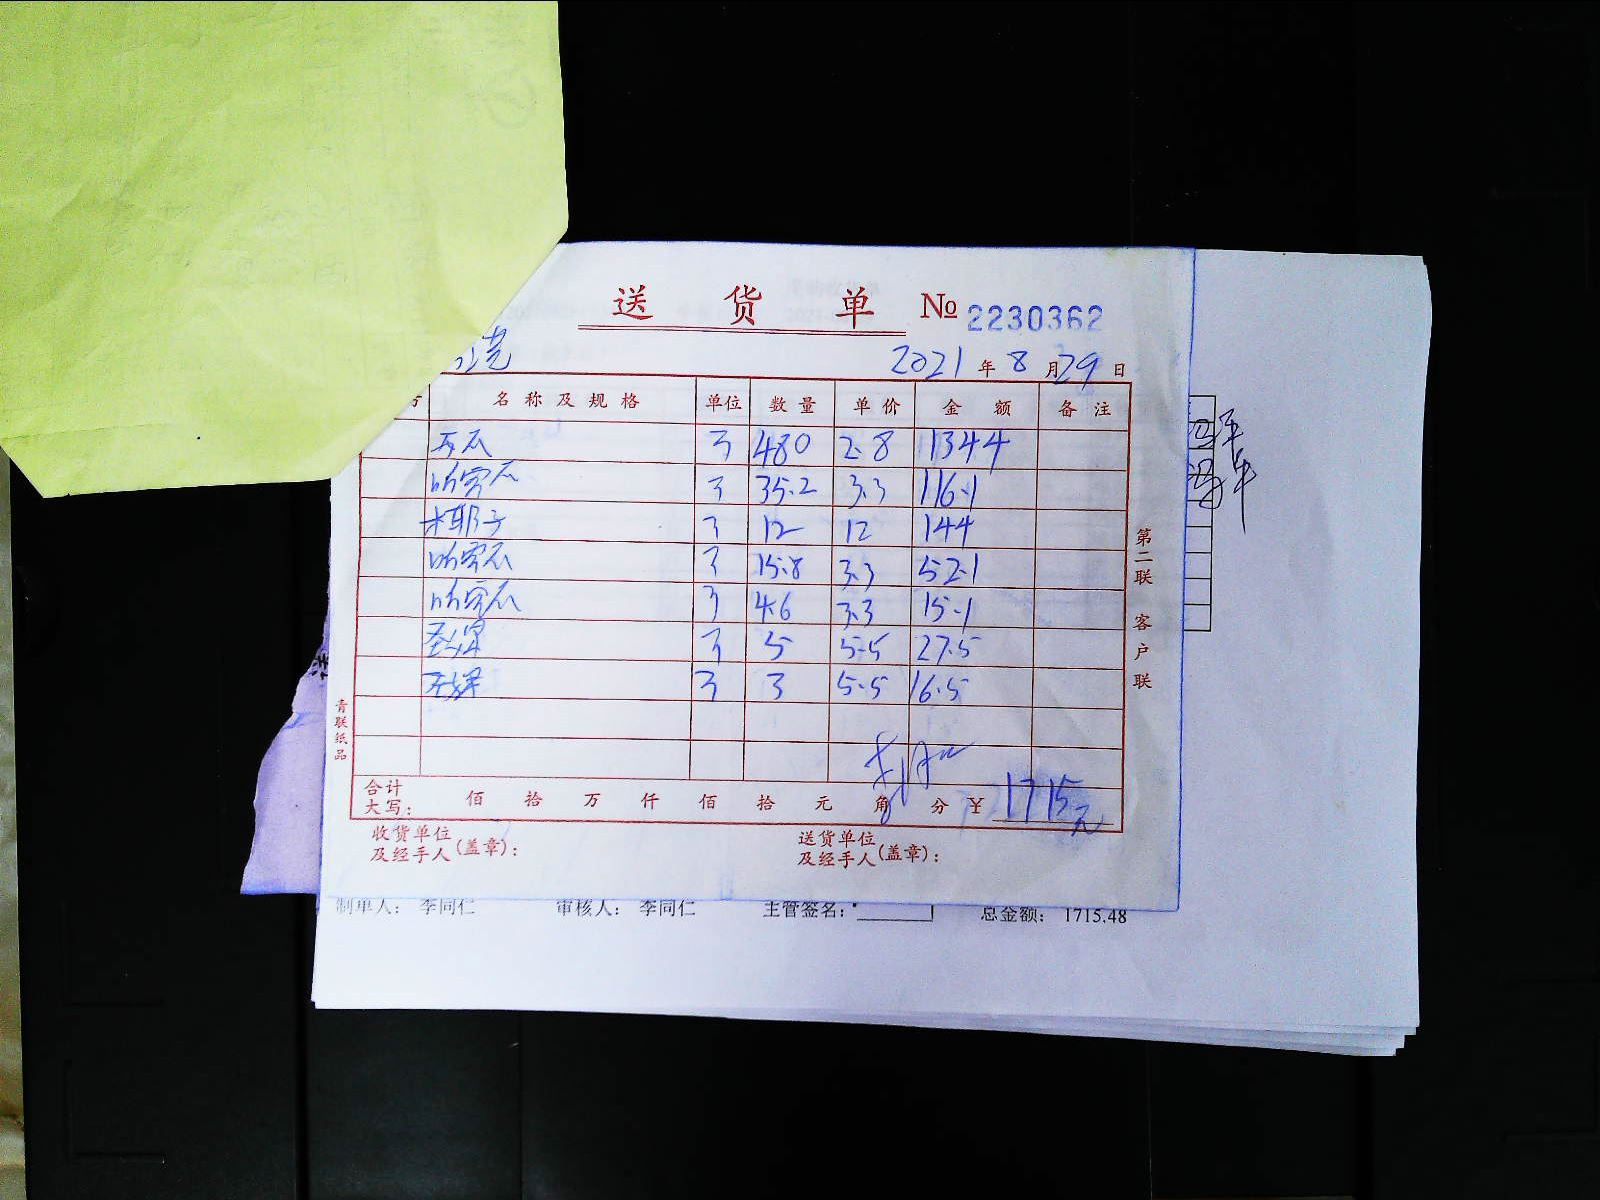 送货单 № 2230362
2021年8月29日
名称及规格 单位 数量 单价 金额 备注
西瓜 斤 480 2.8 1344
哈密瓜 斤 35.2 3.3 116.1
木耶子 斤 12 12 144
哈密瓜 斤 15.8 3.3 52.1
哈密瓜 斤 4.6 3.3 15.1
圣女果 斤 5 5.5 27.5
斤 3 5.5 16.5
合计
大写: 佰 拾 万 仟 佰 拾 元 角 分 ¥ 1715元
收货单位
及经手人(盖章):
送货单位
及经手人(盖章):
第二联 客户联
青联纸品
制单人: 李同仁 审核人: 李同仁 主管签名: 总金额: 1715.48